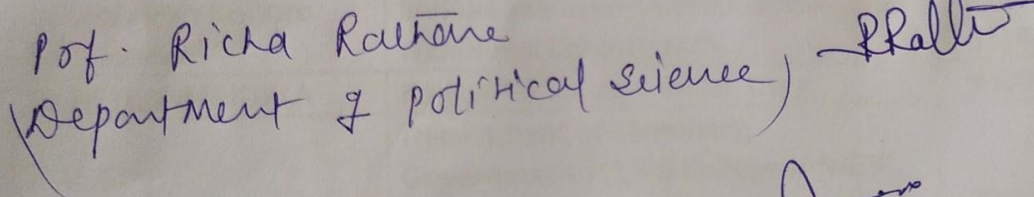 Prof. Richa Rathore
(Department of political science)